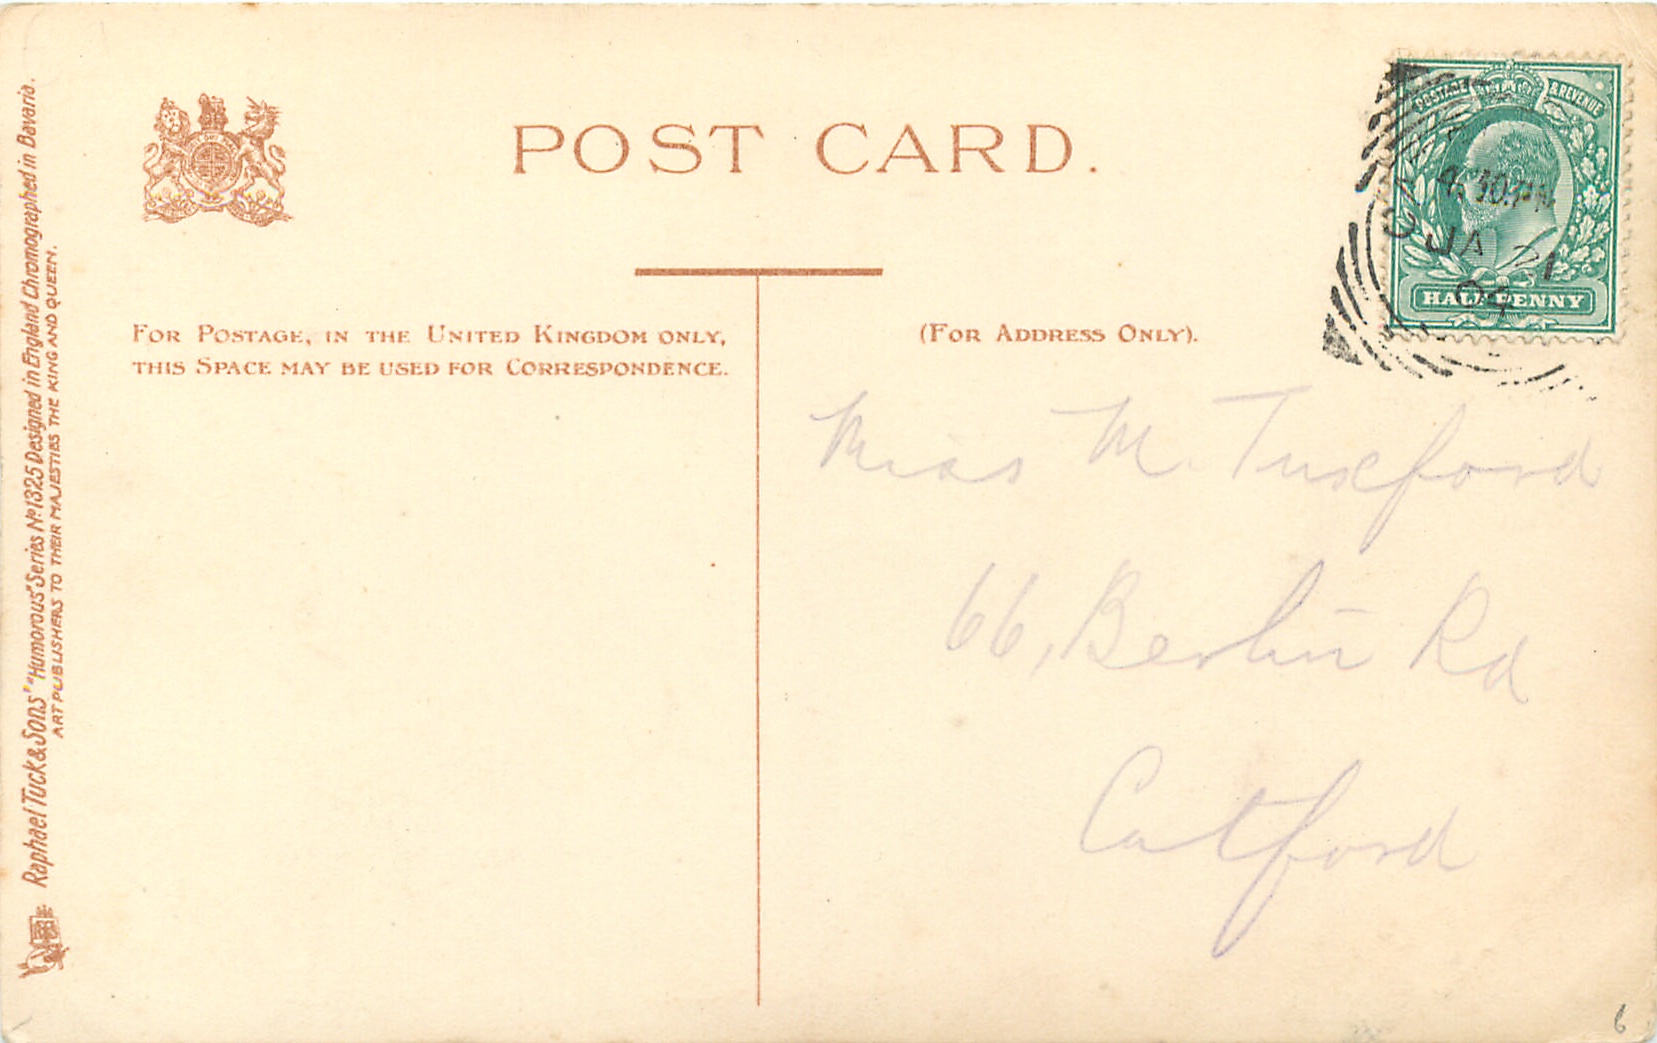 POST CARD.
POSTAGE & REVENUE
4.30.PM
JA 21
04
HALF PENNY
FOR POSTAGE, IN THE UNITED KINGDOM ONLY,
THIS SPACE MAY BE USED FOR CORRESPONDENCE.
(FOR ADDRESS ONLY).
Miss M. Tuxford
66, Berlin Rd
Catford
Raphael Tuck & Sons' "Humorous" Series No 1325 Designed in England Chromographed in Bavaria.
ART PUBLISHERS TO THEIR MAJESTIES THE KING AND QUEEN.
6